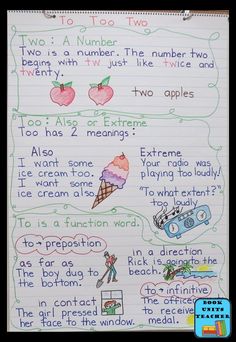 To Too Two
Two : A Number
Two is a number. The number two
begins with tw just like twice and
twenty.
two apples
Too : Also or Extreme
Too has 2 meanings:
Also
I want some
ice cream too.
I want some
ice cream also.
Extreme
Your radio was
playing too loudly.
"To what extent?"
too loudly
To is a function word.
to → preposition
as far as
The boy dug to
the bottom.
in a direction
Rick is going to the
beach.
in contact
The girl pressed
her face to the window.
to → infinitive
The officer
to receive
medal.
BOOK
UNITS
TEACHER